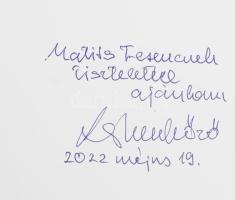 Matits Ferencnek
tisztelettel
ajánlom
2022 május 19.